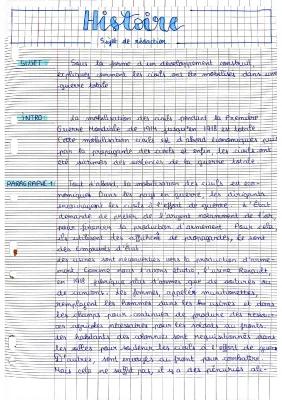 Histoire
Sujet de rédaction
SUJET Sous la forme d'un développement construit,
expliquez comment les civils ont été mobilisés dans une
guerre totale
INTRO La mobilisation des civils pendant la Première
Guerre Mondiale de 1914 jusqu'en 1918 est totale
Cette mobilisation civils est d'abord économique puis
par la propagande des civils et enfin les civils ont
été victimes des violences de la guerre totale
PARAGRAPHE 1: Tout d'abord, la mobilisation des civils est éco-
nomique. Dans les pays en guerre, les dirigeants
encouragent les civils à l'effort de guerre. L'État
demande de prêter de l'argent notamment de l'or
pour financer la production d'armement. Pour cela
ils utilisent des affiches de propagandes, ce sont
des emprunts d'État
Les usines sont reconverties vers la production d'arme-
ment. Comme nous l'avons étudié, l'usine Renault,
en 1918 fabrique plus d'armes que de voitures ou
de camions. Les femmes, appelées munitionnettes
remplacent les hommes dans les usines et dans
les champs pour continuer de produire des ressour-
ces agricoles nécessaires pour les soldats au fronts.
Les habitants des colonies sont réquisitionnés dans
les villes pour soutenir les civils à l'effort de guerre
D'autres, sont envoyés au front pour combattre.
Mais cela ne suffit pas, il y a des pénuries ali-